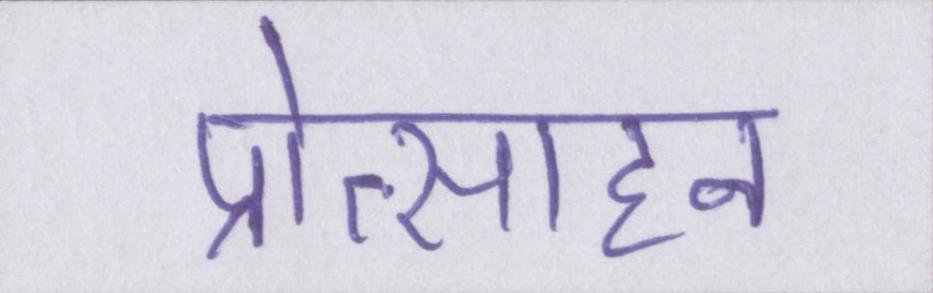 प्रोत्साहन